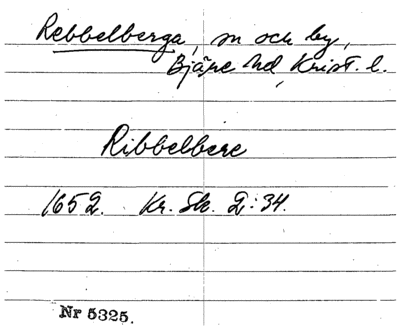 Rebbelberga, sn och by,
Bjäre hd, Krist. l.
Ribbelbere
1652. Kr. Sk. 2:34.
Nr 5325.